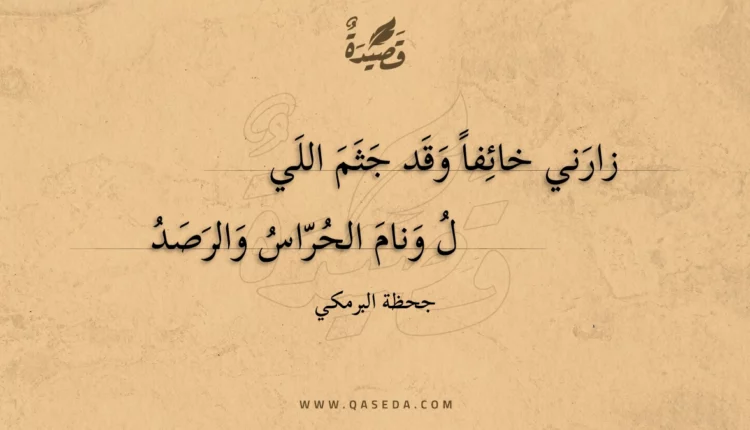 قَصِيدَةٌ
زارَني خائِفاً وَقَد جَثَمَ اللَي
لُ وَنامَ الحُرّاسُ وَالرَصَدُ
جحظة البرمكي
WWW.QASEDA.COM